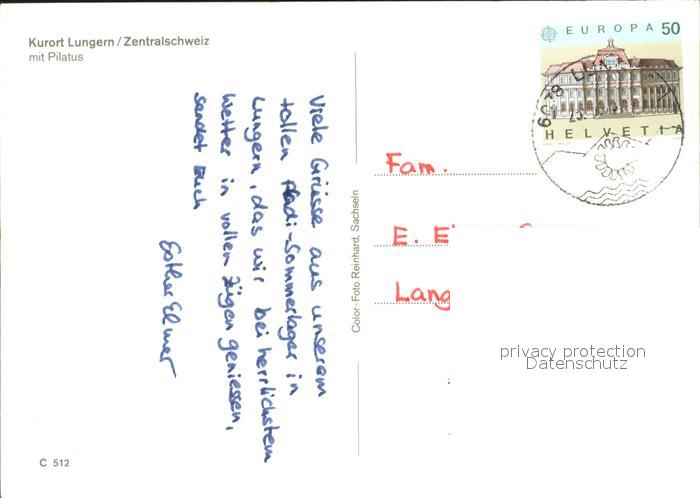 Kurort Lungern / Zentralschweiz
mit Pilatus
Viele Grüsse aus unserem
tollen Pfadi-Sommerlager in
Lungern, das wir bei herrlichstem
Wetter in vollen Zügen geniessen,
sendet Euch
Esther Elmer
C 512
Color-Foto Reinhard, Sachseln
EUROPA 50
HELVETIA
6078 LUN
Fam.
E. E
Lang
privacy protection
Datenschutz